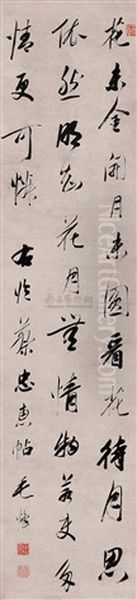 花未全開月未圓看花待月思
依然明知花月無情物若使多
情更可憐 右臨蔡忠惠帖 毛